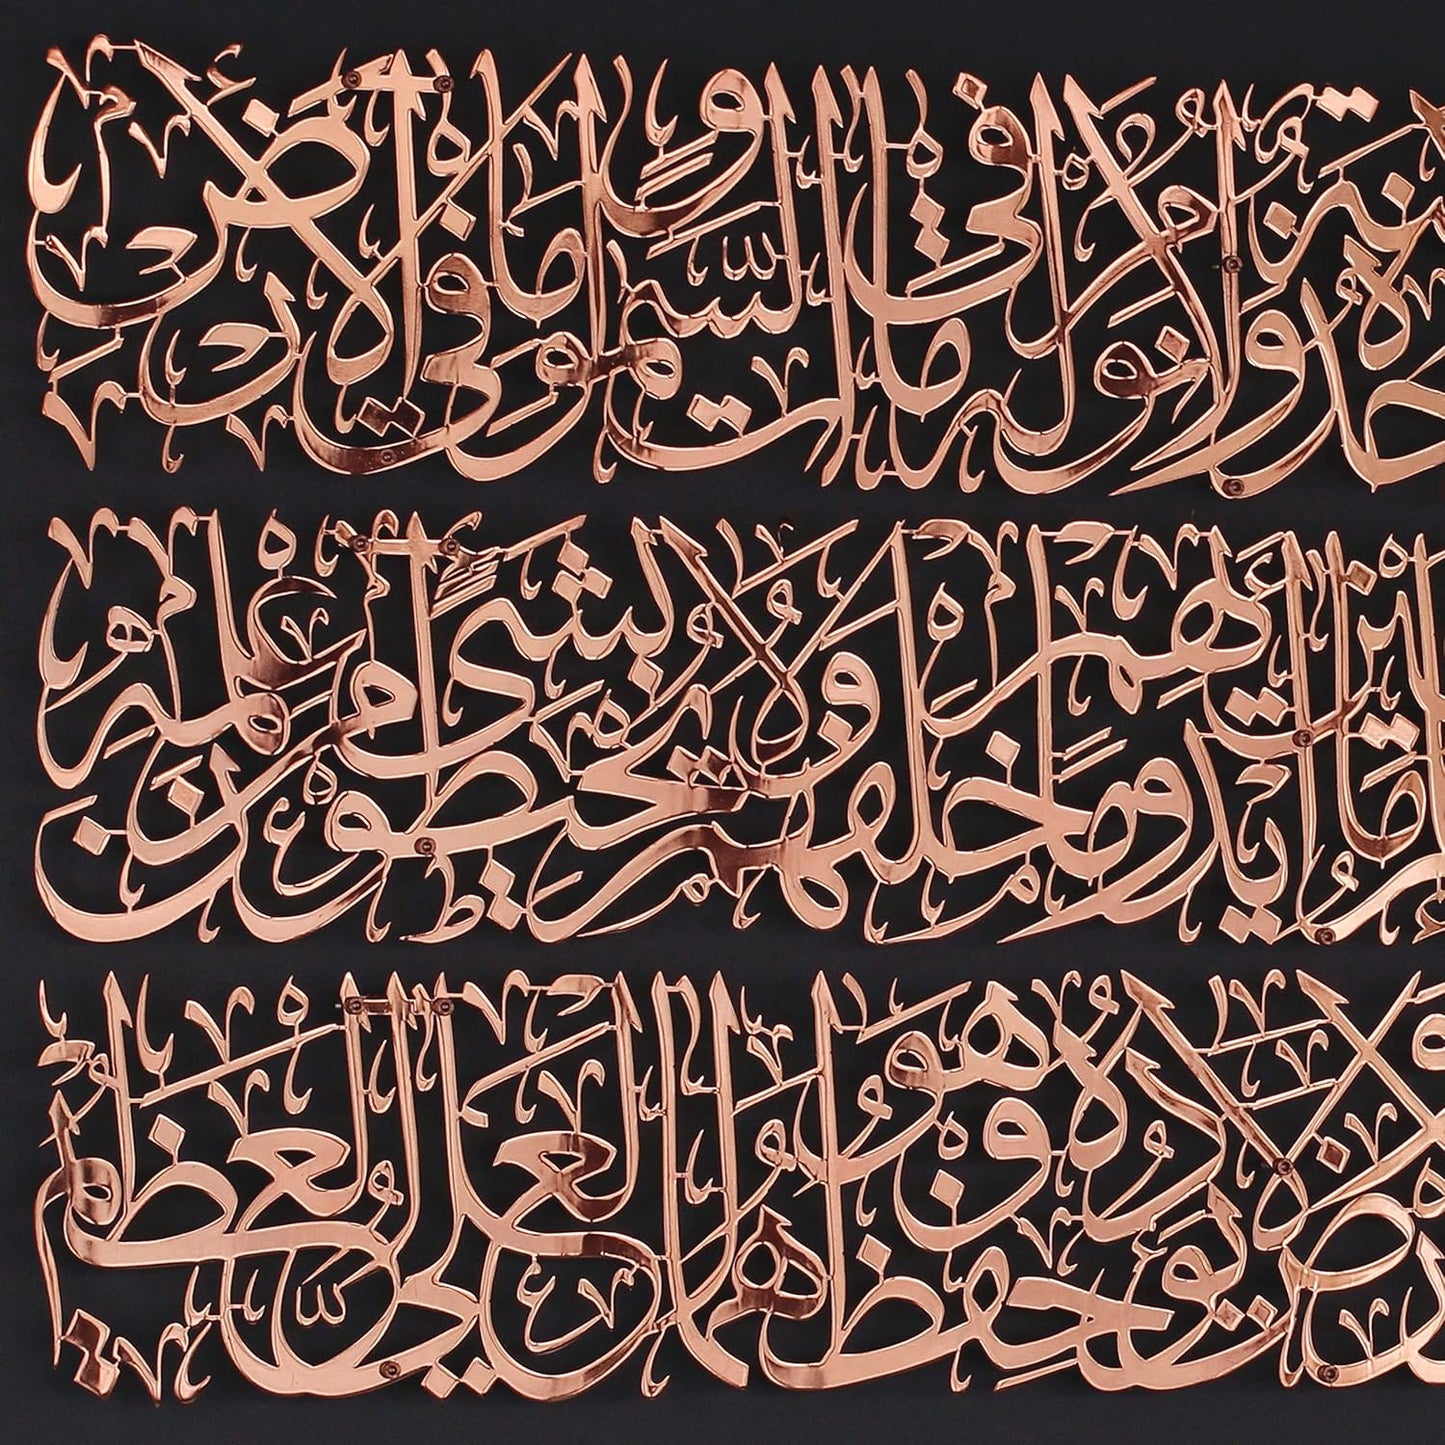 وَلَا نَوْمٌ لَهُ مَا فِي السَّمٰوَاتِ وَمَا فِي الْأَرْضِ
أَيْدِيهِمْ وَمَا خَلْفَهُمْ وَلَا يُحِيطُونَ بِشَيْءٍ مِنْ عِلْمِهِ
وَلَا يَؤُدُهُ حِفْظُهُمَا وَهُوَ الْعَلِيُّ الْعَظِيمُ